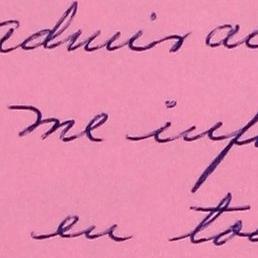 admirac
me inf
en to